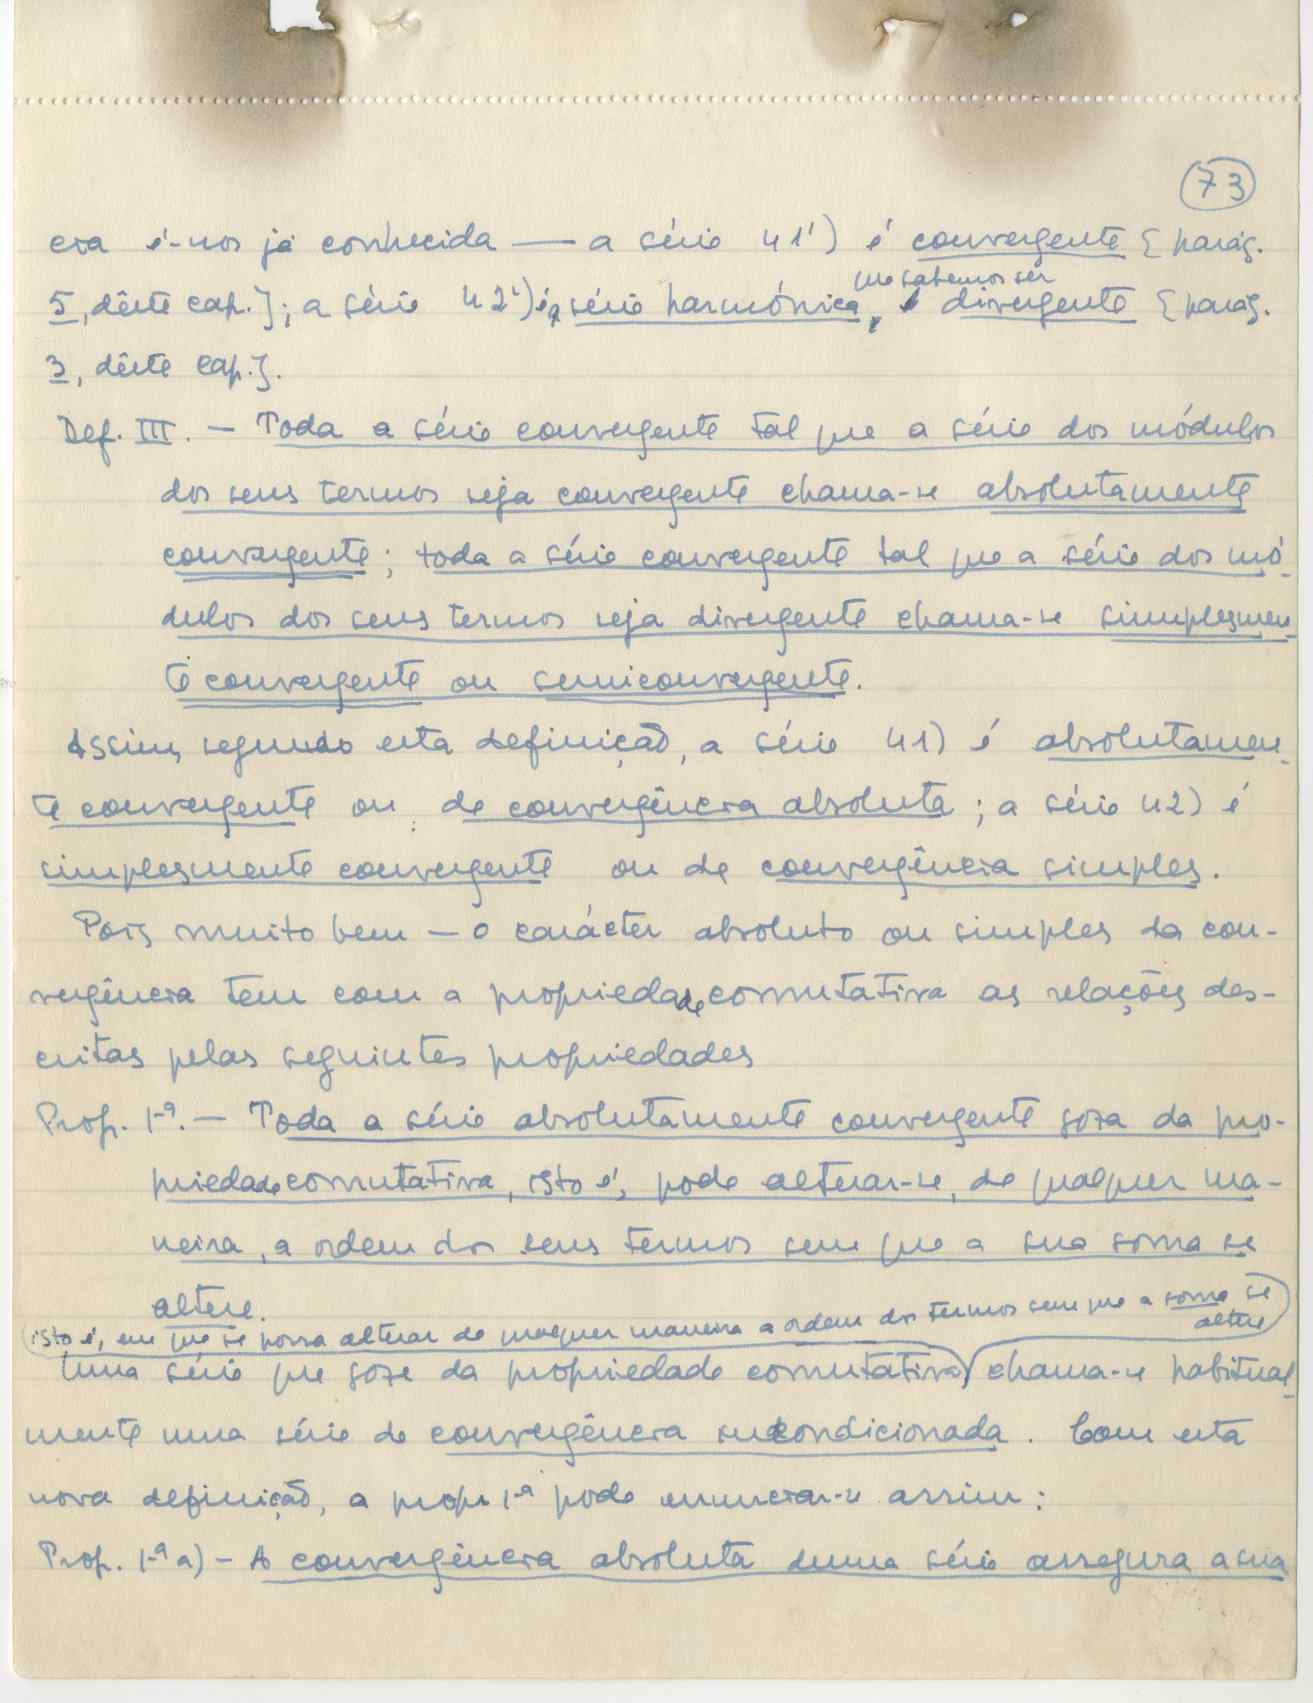 73
cia é-nos já conhecida — a série 41') é convergente [parág.
que sabemos ser
5, dêste cap.]; a série 42') é a série harmónica, divergente [parág.
3, dêste cap.].
Def. III. — Toda a série convergente tal que a série dos módulos
dos seus termos seja convergente chama-se absolutamente
convergente; toda a série convergente tal que a série dos mó-
dulos dos seus termos seja divergente chama-se simplesmen-
te convergente ou semiconvergente.
Assim, segundo esta definição, a série 41) é absolutamen-
te convergente ou de convergência absoluta; a série 42) é
simplesmente convergente ou de convergência simples.
Pois muito bem — o carácter absoluto ou simples da con-
vergência tem com a propriedade comutativa as relações des-
critas pelas seguintes propriedades
Prop. 1ª. — Toda a série absolutamente convergente goza da pro-
priedade comutativa, isto é, pode alterar-se, de qualquer ma-
neira, a ordem dos seus termos sem que a sua soma se
altere.
isto é, em que se possa alterar de qualquer maneira a ordem dos termos sem que a soma se
altere
Uma série que goze da propriedade comutativa chama-se habitual-
mente uma série de convergência incondicionada. Com esta
nova definição, a prop. 1ª pode enunciar-se assim:
Prop. 1ª a) — A convergência absoluta duma série assegura a sua